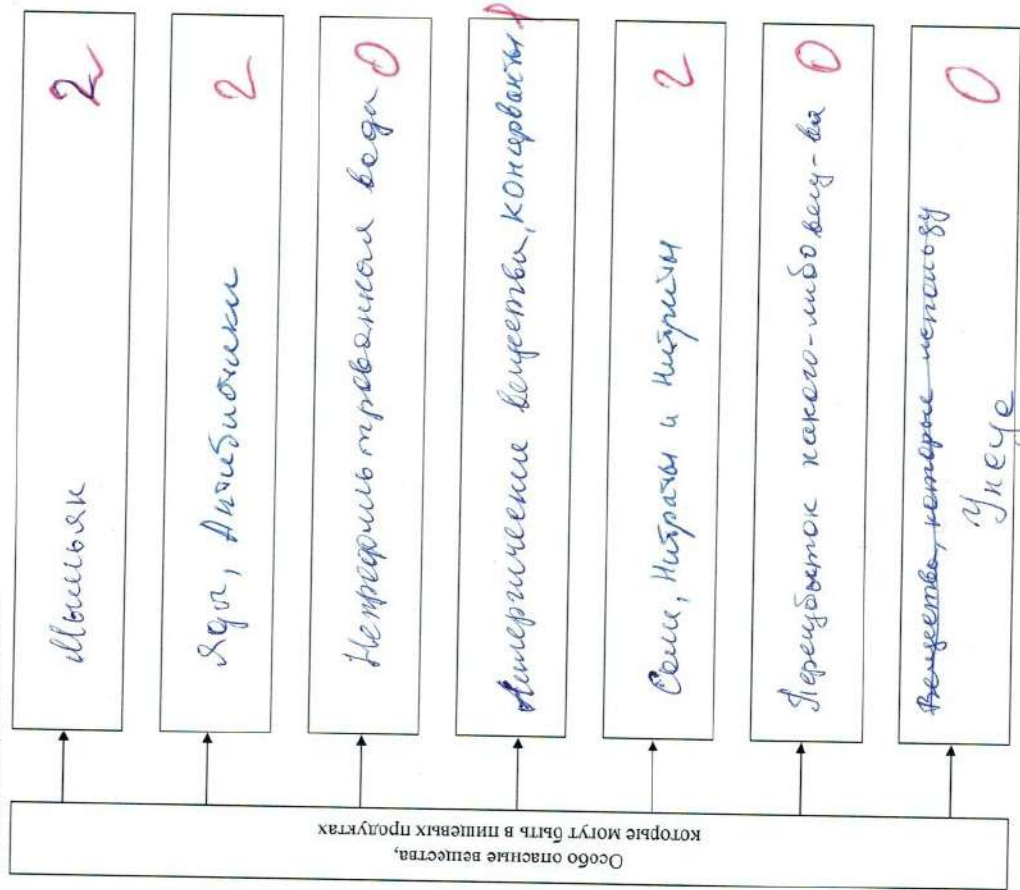 Особо опасные вещества,
которые могут быть в пищевых продуктах
Мышьяк 2
Яды, Антибиотики 2
Непрофильтрованная вода 0
Аллергические вещества, консерванты
Соли, Нитраты и Нитриты 2
Переизбыток какого-либо вещ-ва 0
Вещества, которые использу
0